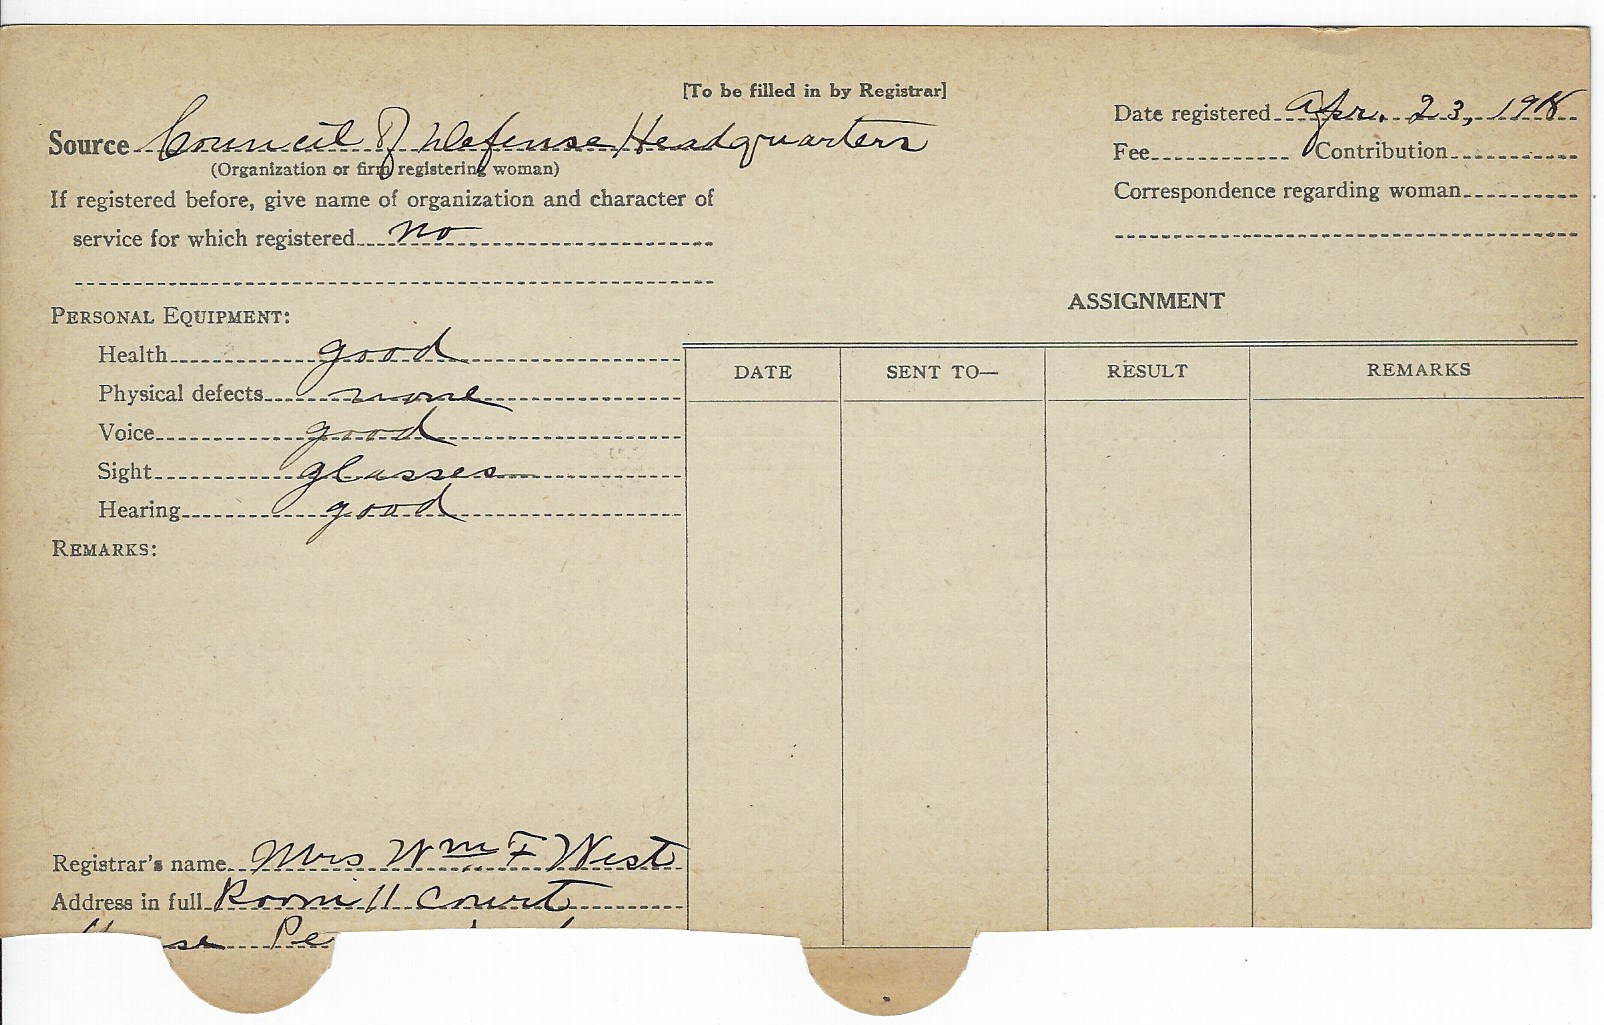 [To be filled in by Registrar]
Date registered Apr. 23, 1918
Source Council of Defense Headquarters
(Organization or firm registering woman)
Fee Contribution
If registered before, give name of organization and character of
Correspondence regarding woman
service for which registered no
ASSIGNMENT
PERSONAL EQUIPMENT:
Health good
DATE SENT TO— RESULT REMARKS
Physical defects none
Voice good
Sight glasses
Hearing good
REMARKS:
Registrar's name Mrs Wm F West
Address in full Room 11 Court
House Pe